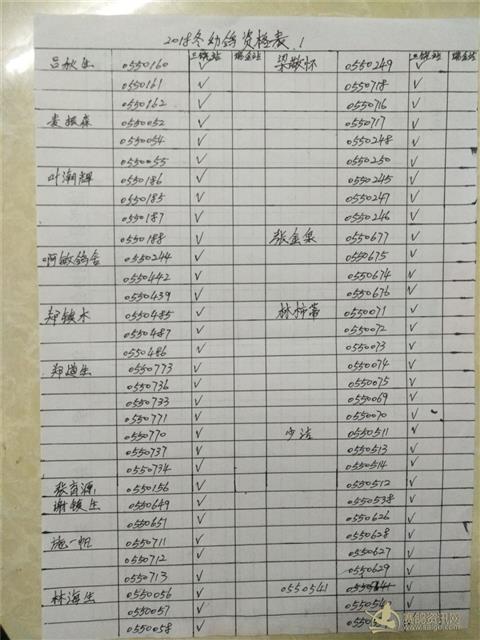 2018冬幼鸽资格表 1
三饶站 瑞金站 三饶站 瑞金站
吕秋生 0550160 ✓ 梁敬怀 0550249 ✓
0550161 ✓ 0550718 ✓
0550162 ✓ 0550716 ✓
麦根森 0550052 ✓ 0550717 ✓
0550054 ✓ 0550248 ✓
0550055 ✓ 0550250 ✓
叶潮辉 0550186 ✓ 0550245 ✓
0550185 ✓ 0550247 ✓
0550187 ✓ 0550246 ✓
0550188 ✓ 张金泉 0550677 ✓
啊敏鸽舍 0550244 ✓ 0550675 ✓
0550442 ✓ 0550674 ✓
0550439 ✓ 0550676 ✓
郑镇木 0550485 ✓ 林柿蒂 0550071 ✓
0550487 ✓ 0550072 ✓
0550486 ✓ 0550073 ✓
0550773 ✓ 0550074 ✓
0550736 ✓ 0550075 ✓
0550733 ✓ 0550069 ✓
0550771 ✓ 0550070 ✓
0550770 ✓ 少洁 0550511 ✓
0550737 ✓ 0550513 ✓
0550734 ✓ 0550514 ✓
张育源 0550156 ✓ 0550512 ✓
谢镇生 0550649 ✓ 0550538 ✓
0550651 ✓ 0550626 ✓
施一帆 0550711 ✓ 0550628 ✓
0550712 ✓ 0550627 ✓
0550713 ✓ 0550629 ✓
林海生 0550056 ✓ 0550541
0550057 ✓
0550058 ✓